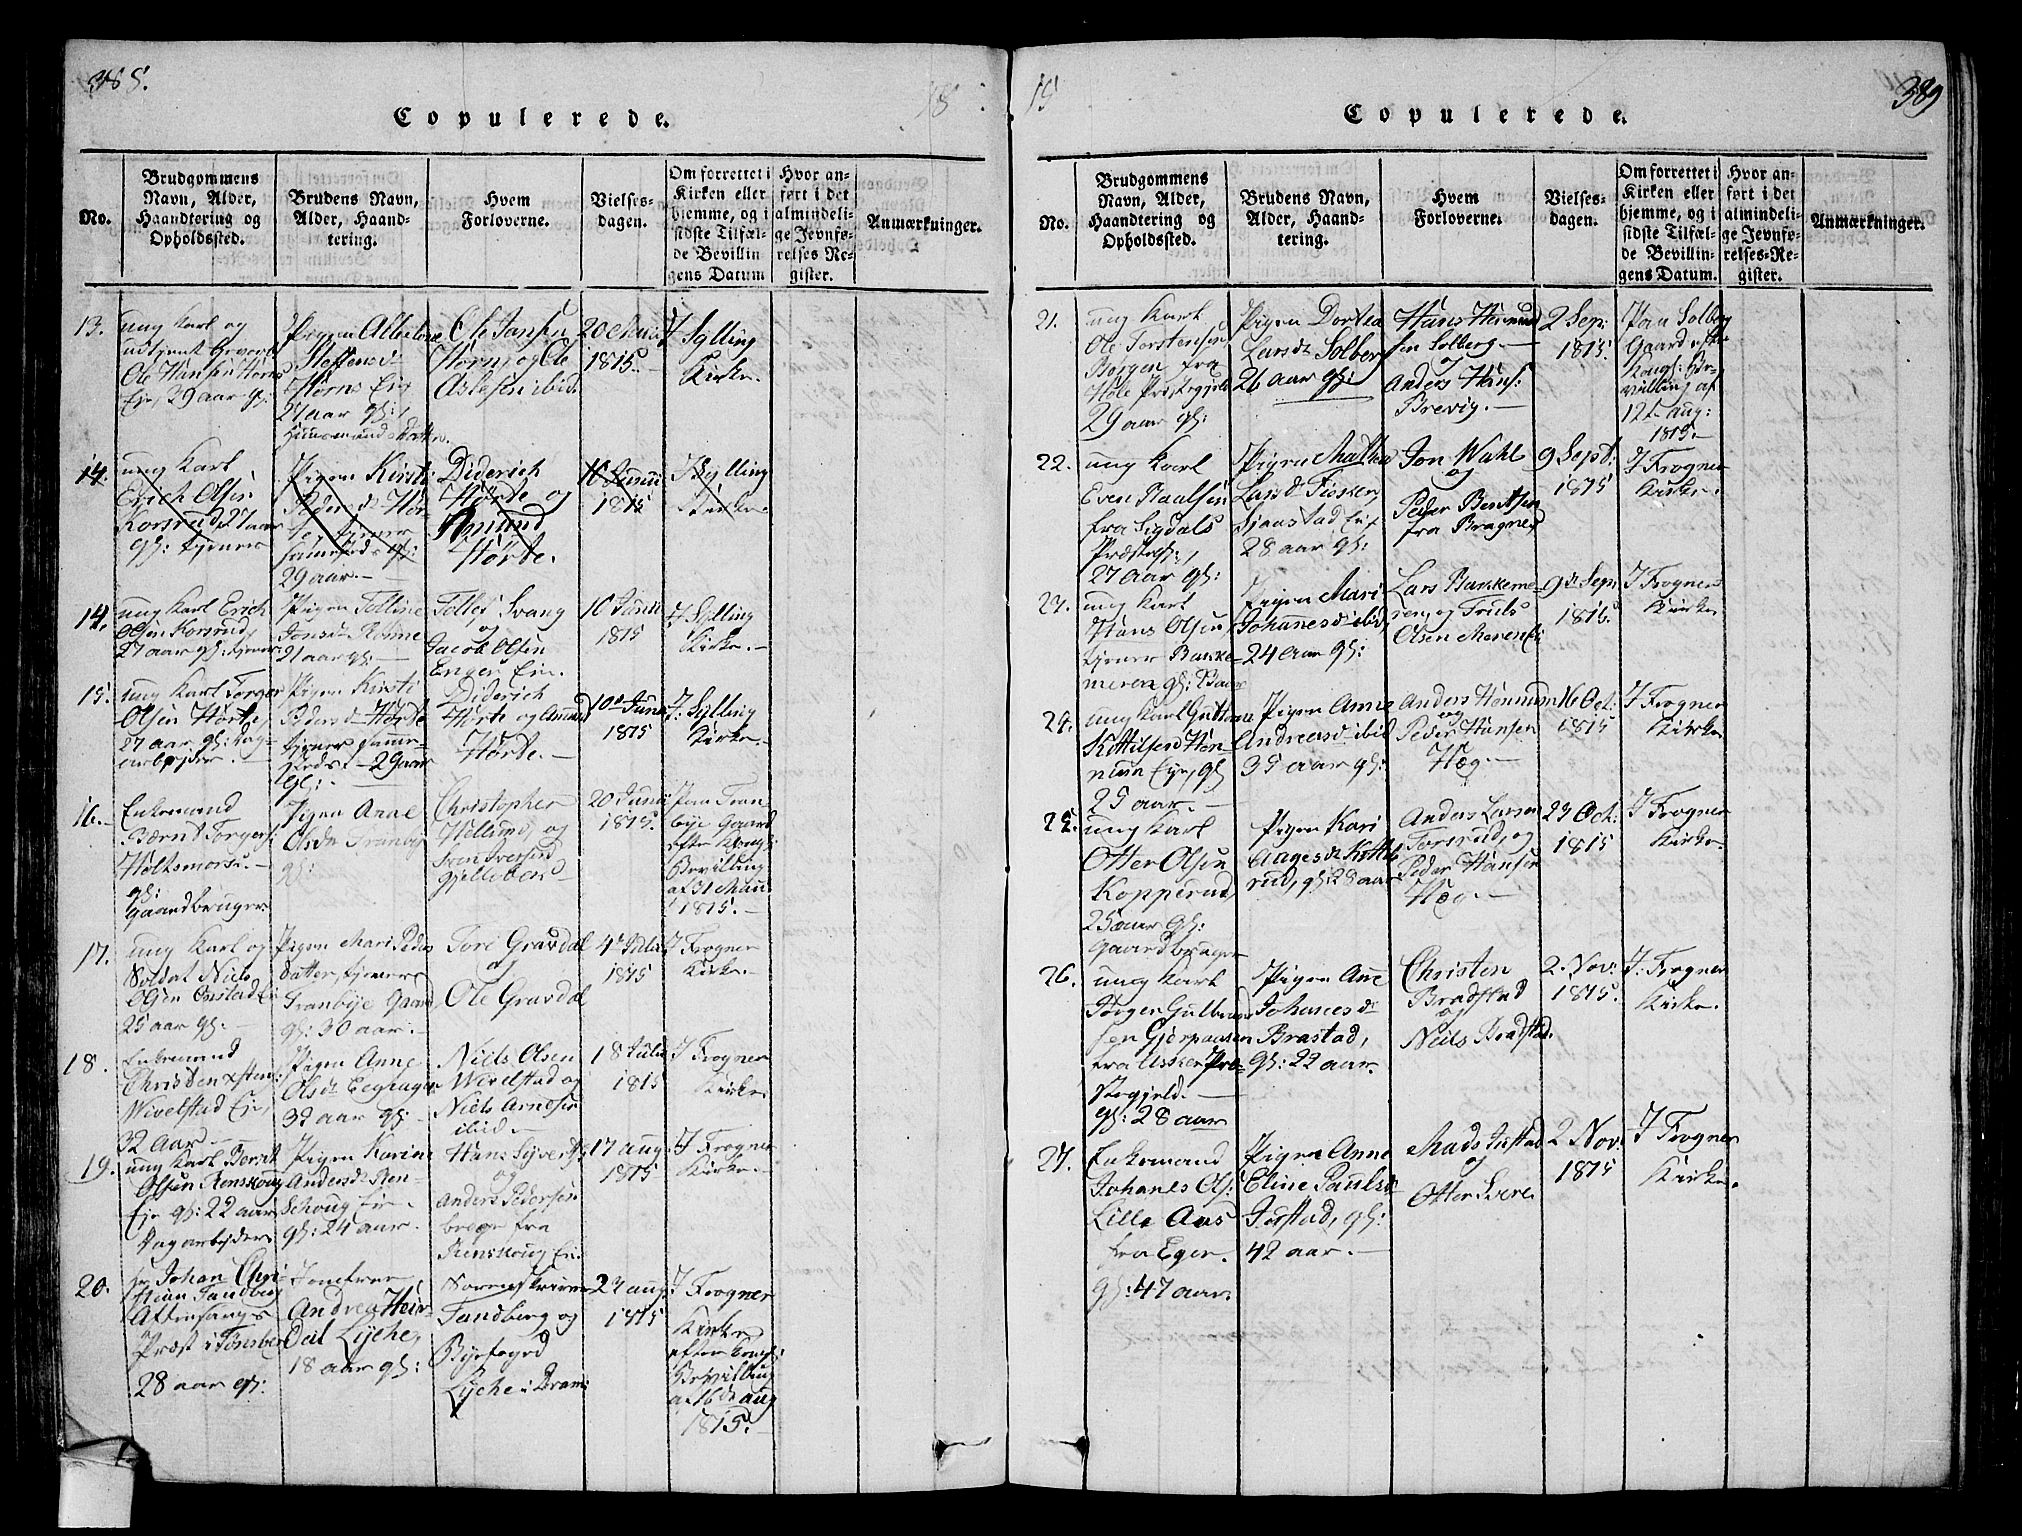 385.
18
Copulerede.
No.
Brudgommens
Navn, Alder,
Haandtering og
Opholdssted.
Brudens Navn,
Alder, Haand-
tering.
Hvem
Forloverne.
Vielses-
dagen.
Om forrettet i
Kirken eller
hjemme, og i
sidste Tilfæl-
de Bevillin
gens Datum
Hvor an-
ført i det
almindeli-
ge Jevnfø-
relses-Re-
gister.
Anmærkninger.
13.
ung Karl og
Ole Hansen Hørns
Eje, 29 aar gl:
Pigen
Steffensd
Hørns Eje
27 aar gl:
Ole Jansen
Hørn, og Ole
ibid
20 Maii
1815.
I Sylling
Kirke.
14.
ung Karl
Erich Olsen
Korsrud, 27 aar
gl: tjener
Pigen Kirsti
Peders d Hør-
te, tjener
sammesteds gl:
29 aar.
Diderich
Hørte og
Amund
Hørte.
10 Junii
1815
I Sylling
Kirke.
14.
ung Karl Erich
Olsen Korsrud,
27 aar gl: tjener
Pigen
Jonsd
21 aar gl:
Svang
og
Jacob Olsen
Enger Eie.
10 Junii
1815
I Sylling
Kirke.
15.
ung Karl Torger
Olsen Hørte,
27 aar gl: dag-
arbejder.
Pigen Kirsti
Pedersd Hørte
tjener samme-
steds. 29 aar
gl:
Diderich
Hørte og Amund
Hørte.
10d Junii
1815
I: Sylling
Kirke.
16.
Enkemand
Bærnt Torgers:
Holtsmarsei.
gl:
gaardbruger.
Pigen Anne
Olsdr Tranby
gl:
Christopher
og
Iversen
20 Junii
1815.
Paa Tran
bye Gaard
efter Kongl:
Bevilling
af 31 Maii
1815.
17.
ung Karl og
Soldat Niels
Olsen Onstad Ei
25 aar gl.
Pigen Mari Peders
datter, tjener
Tranbye Gaard
gl: 30 aar.
Tore Gravdal
og
Ole Gravdal
4d Julii
1815
I Frogner
Kirke.
18.
Enkemand
Christen
Wivelstad Eje,
32 Aar
Pigen Anne
Olsdr
32 aar gl:
Niels Olsen
Wivelstad og
Niels Arnesen
ibid.
18 Julii
1815
I Frogner
Kirke.
19.
ung Karl Bernt
Olsen Renskoug
Eje gl: 22 aar
Dagarbejder
Pigen Karine
Andersdr Ren-
schoug Eie.
gl: 24 aar.
Hans
og
Anders Pedersen
fra
Renskoug Ei.
17 aug:
1815
I Frogner
Kirke.
20.
hr Johan Chri-
stian Tandberg
Aftensangs
Præst i Tønsberg
28 aar gl:
Jomfrue
Andrea
Lyche,
18 aar gl:
Sorenskriver
Tandberg og
Byefogd
Lyche i Dram:
23 aug:
1815
I Frogner
Kirke
efter Kongl:
Bevilling
af 16de aug
1815.
15
389
Copulerede.
No.
Brudgommens
Navn, Alder,
Haandtering og
Opholdssted.
Brudens Navn,
Alder, Haand-
tering.
Hvem
Forloverne.
Vielses-
dagen.
Om forrettet i
Kirken eller
hjemme, og i
sidste Tilfæl-
de Bevillin-
gens Datum.
Hvor an-
ført i det
almindeli-
ge Jevnfø-
relses-Re-
gister.
Anmærkninger.
21.
ung Karl
Ole Torstensen
Borgen fra
Hole Præstegjeld
29 aar gl:
Pigen Dortea
Larsdr Solberg
26 aar gl:
Hans
sen Solberg.
og
Anders Hans:
Brevig.
2 Sep:
1815.
Paa Solberg
Gaard efter
Kongl: Be-
villing af
12t aug:
1815.
22.
ung Karl
Even Paalsen
fra Sigdals
Præstegl:
27 aar gl:
Pigen Martha
Larsdr
Sjaastad Ei
28 aar gl:
Jon Wahl
og
Peder Bentsen
fra Bragnes
9 Sept:
1815
I Frogner
Kirke.
23.
ung Karl
Hans Olsen,
tjener Bakke-
meren gl:
Pigen Mari
Johanesd ibid,
24 Aar gl:
Lars Bakkeme-
ren, og Truls
Olsen Meren Ei
9de Sept
1815.
I Frogner
Kirke.
24.
ung Karl Guttorm
Kittilsen Høn-
num Eje, gl
25 aar.
Pigen Anne
Andreasd ibid
35 aar gl:
Anders Hønnum
og
Peder Hansen
Hæg.
16 Oct:
1815
I Frogner
Kirke
25.
ung Karl
Otter Olsen
Kopperud,
25 aar gl:
Gaardbruger
Pigen Kari
Aagesdr
rud, gl: 28 aar
Anders Larsen
Torsrud, og
Peder Hansen
Hæg.
23 Oct:
1815
I Frogner
Kirke.
26.
ung Karl
Jørgen Gulbrand
sen
fra Asker Præ-
stegjeld.
gl: 28 aar
Pigen Ane
Johanesdr
Brastad,
gl: 22 aar.
Christen
Bradstad
og
Niels Bradstad.
2. Nov:
1815.
I: Frogner
Kirke.
27.
Enkemand
Johanes Ols:
Lille Aas
fra Eger.
gl: 47 aar.
Pigen Anne
Eline Paulsdr
Justad, gl:
42 aar.
Mads Justad
og
Otter Svere
2 Nov:
1815
I Frogner
Kirke.